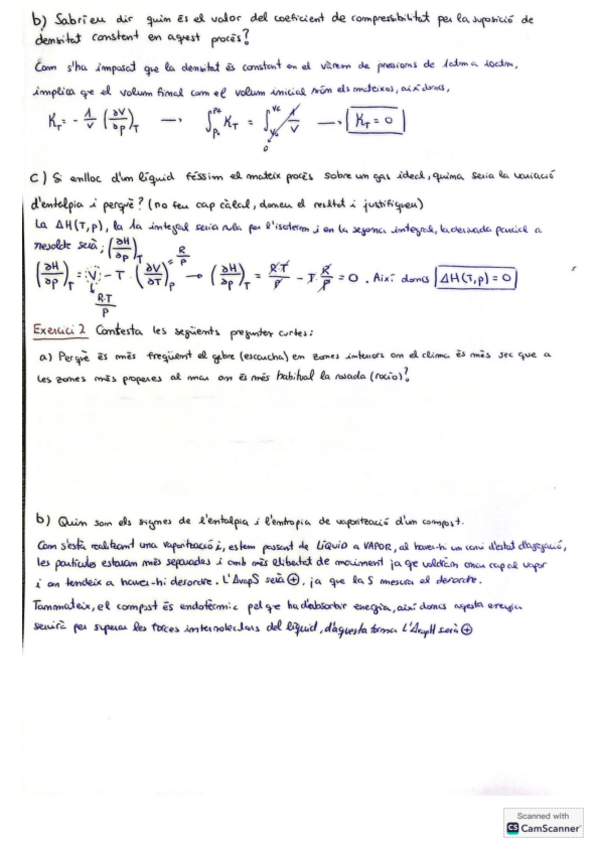 b) Sabríeu dir quin és el valor del coeficient de compressibilitat per la suposició de
densitat constant en aquest procés?
Com s'ha imposat que la densitat és constant en el vàrem de pressions de 1atm a 10atm,
implica que el volum final com el volum inicial són els mateixos, així doncs,
K_T = - 1/V (∂V/∂p)_T → ∫ K_T = ∫ 1/V → K_T = 0
c) Si enlloc d'un líquid féssim el mateix procés sobre un gas ideal, quina seria la variació
d'entalpia i perquè? (no feu cap càlcul, doneu el resultat i justifiqueu)
La ΔH(T,p), la 1a integral seria nul·la per l'isoterm i en la segona integral, la derivada parcial a
resoldre serà: (∂H/∂p)_T
(∂H/∂p)_T = V - T · (∂V/∂T)_p → (∂H/∂p)_T = R·T/P - T·R/P = 0. Així doncs ΔH(T,p) = 0
= R/P
R·T/P
Exercici 2 Contesta les següents preguntes curtes:
a) Perquè és més freqüent el gebre (escarcha) en zones interiors on el clima és més sec que a
les zones més properes al mar on és més habitual la rosada (rocío)?
b) Quin som els signes de l'entalpia i l'entropia de vaporització d'un compost.
Com s'està realitzant una vaporització i, estem passant de LÍQUID a VAPOR, al haver-hi un canvi d'estat d'agregació,
les partícules estaran més separades i amb més llibertat de moviment ja que anem cap al vapor
i on tendeix a haver-hi desordre. L'ΔvapS serà ⊕, ja que la S mesura el desordre.
Tanmateix, el compost és endotèrmic pel que ha d'absorbir energia, així doncs aquesta energia
servirà per superar les forces intermoleculars del líquid, d'aquesta forma l'ΔvapH serà ⊕
Scanned with
CS CamScanner